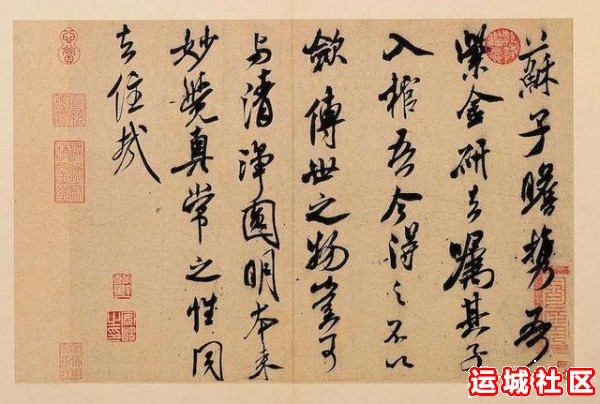 蘇子瞻携吾
紫金研去嘱其子
入棺吾今得之不以
歛傳世之物豈可
与清淨圓明本来
妙覺真常之性同
去住哉
运城社区